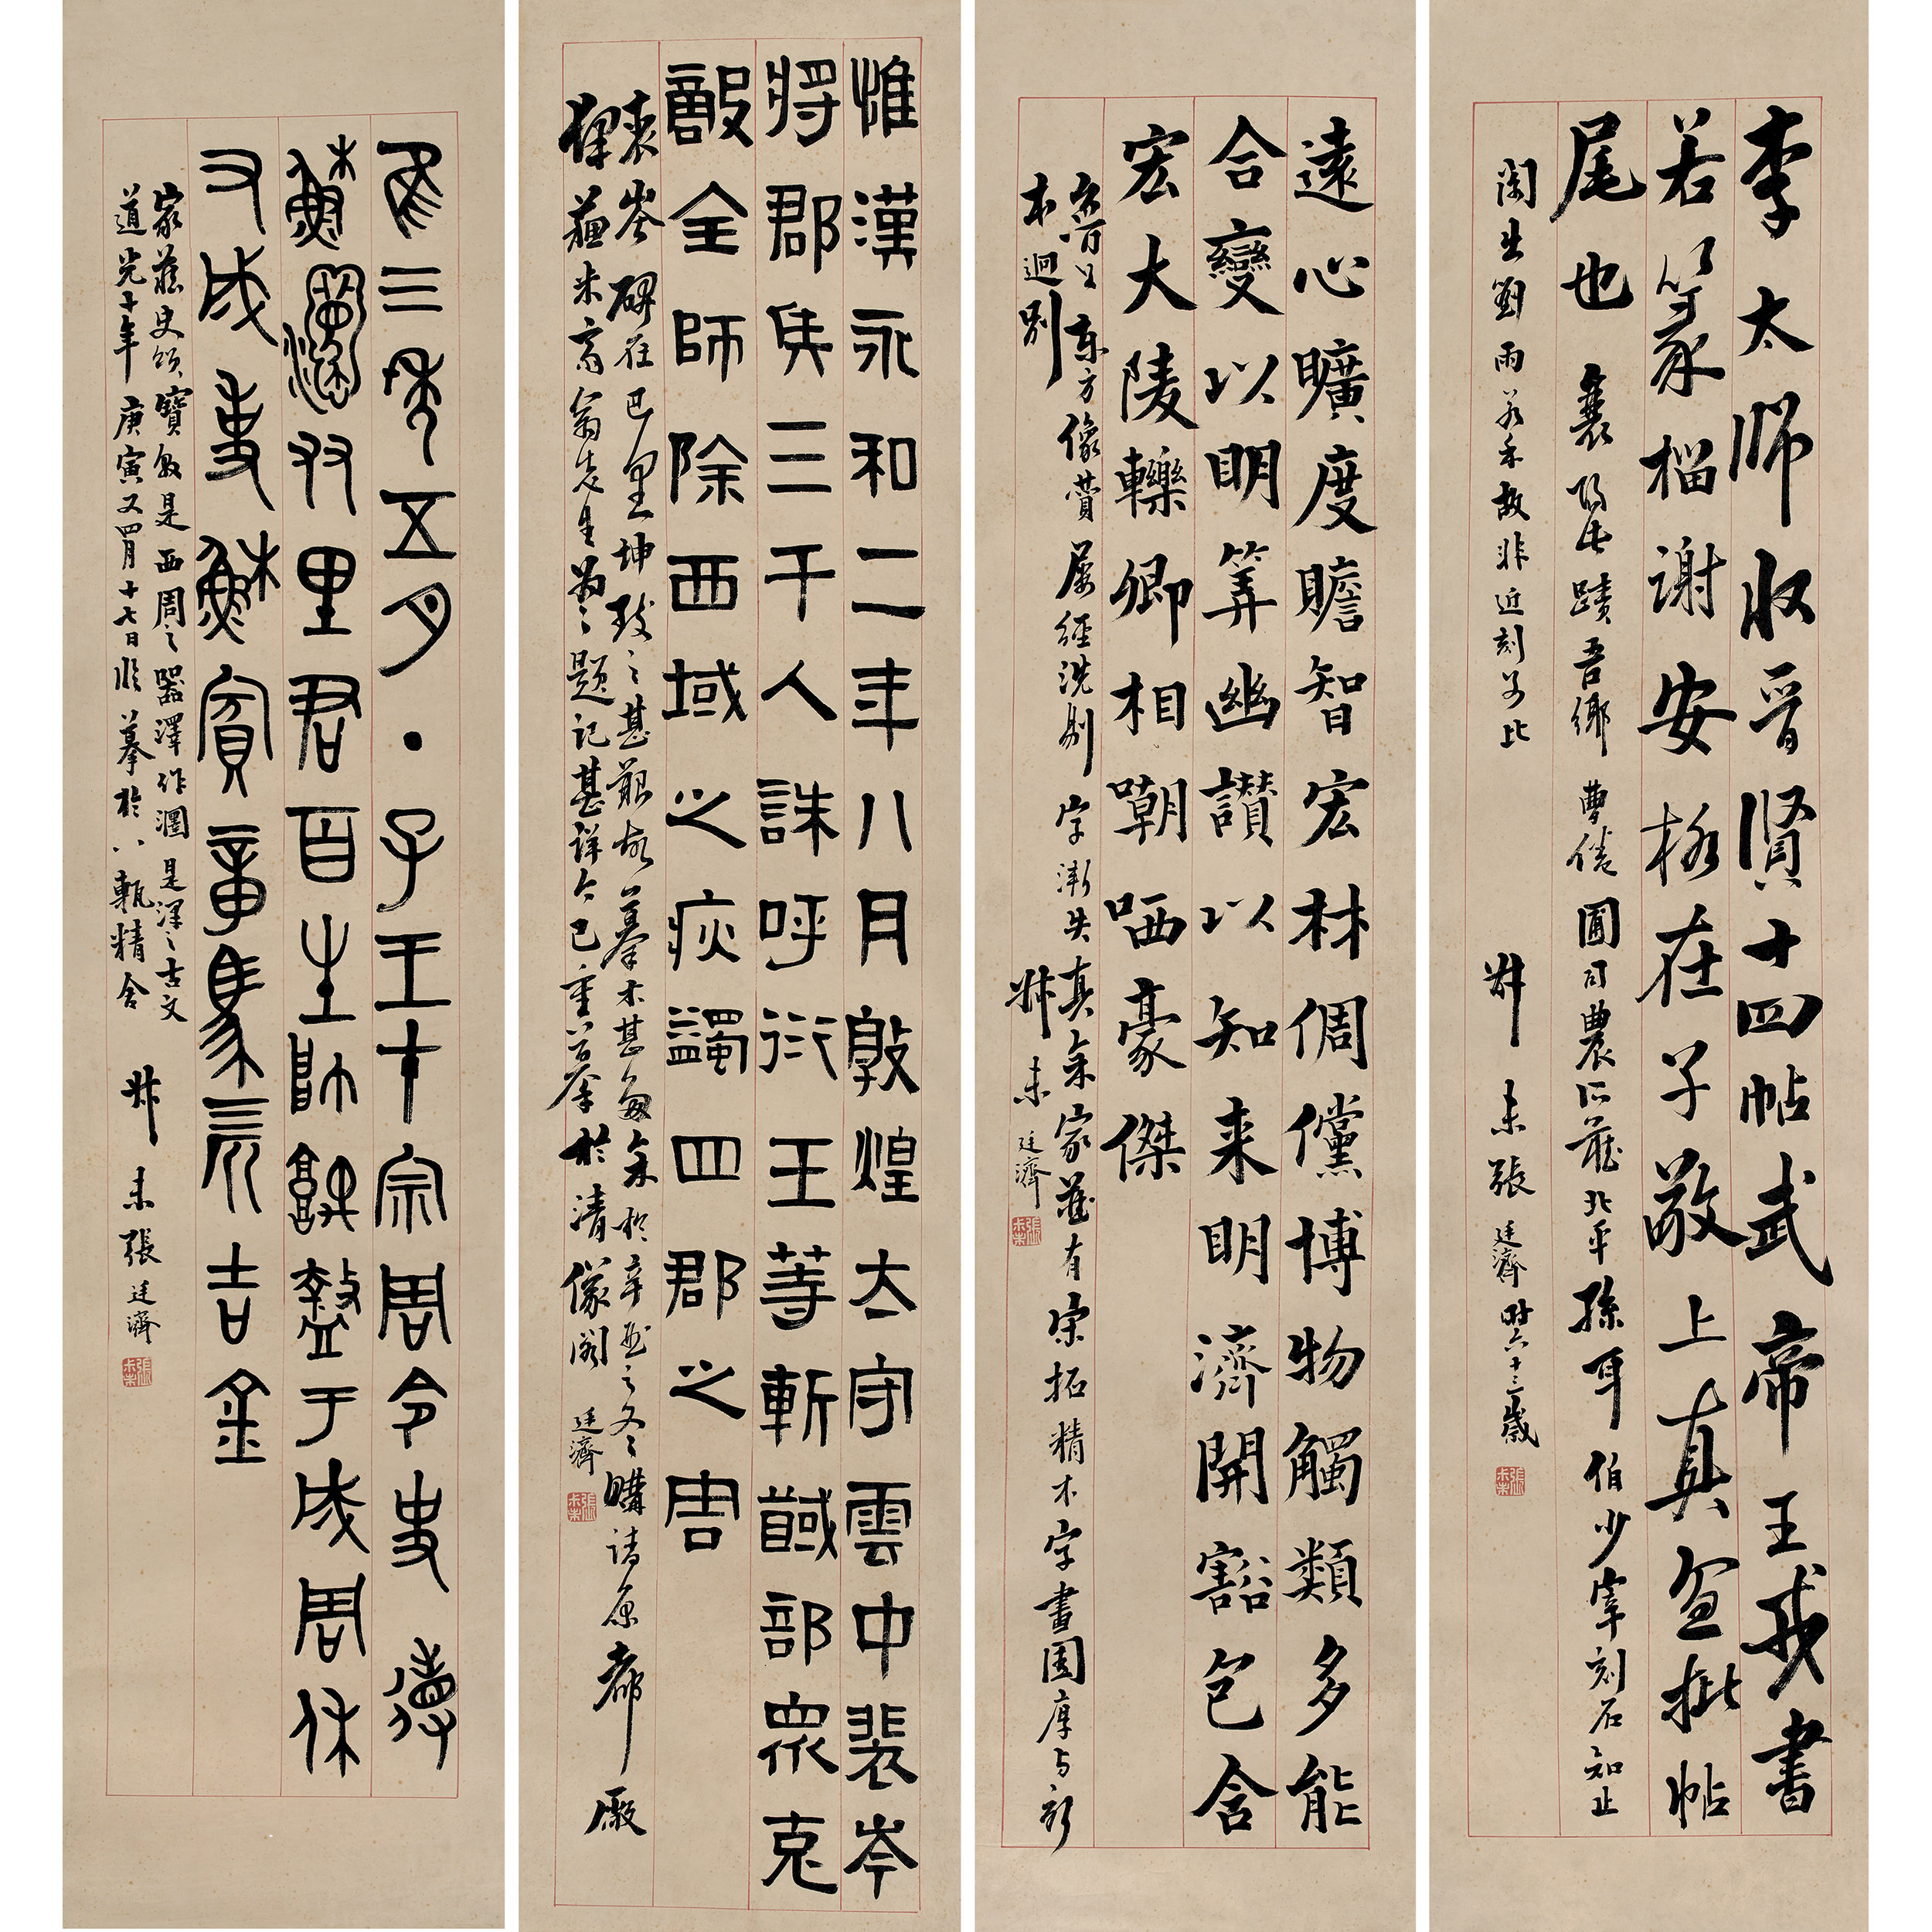 李太師收晉賢十四帖武帝王戎書
若篆榴謝安格在子敬上真宜批帖
尾也
襄陽此蹟吾鄉曹倦圃司農所藏北平孫耳伯少宰刻石知止
閣出劉雨若手故非近刻可比
尗未張廷濟時六十三歲
張尗未
遠心曠度贍智宏材倜儻博物觸類多能
合變以明筭幽讃以知来明濟開豁包含
宏大陵轢卿相嘲哂豪傑
魯公東方像賛屢經洗剔字漸失真余家藏有宋拓精本字畫圓厚与許
本迥別
尗未廷濟
張尗未
惟漢永和二年八月敦煌太守雲中裴岑
將郡兵三千人誅呼衍王等斬馘部眾克
敵全師除西域之疢蠲四郡之害
裴岑碑在巴里坤致之甚艱故摹本甚多余於辛酉之冬購諸原都廠
肆蘇米齋翁先生為之題記甚詳今已重摹於清儀閣
廷濟
張尗未
隹三年五月丁子王才宗周令史頌
穌灋友里君百生帥䣄盩于成周休
又成事穌賓章馬三匹吉金
家藏史頌寶敦是西周之器澤作灂是澤之古文
道光十年庚寅又四月十七日張摹於八甎精舍
尗未張廷濟
張尗未